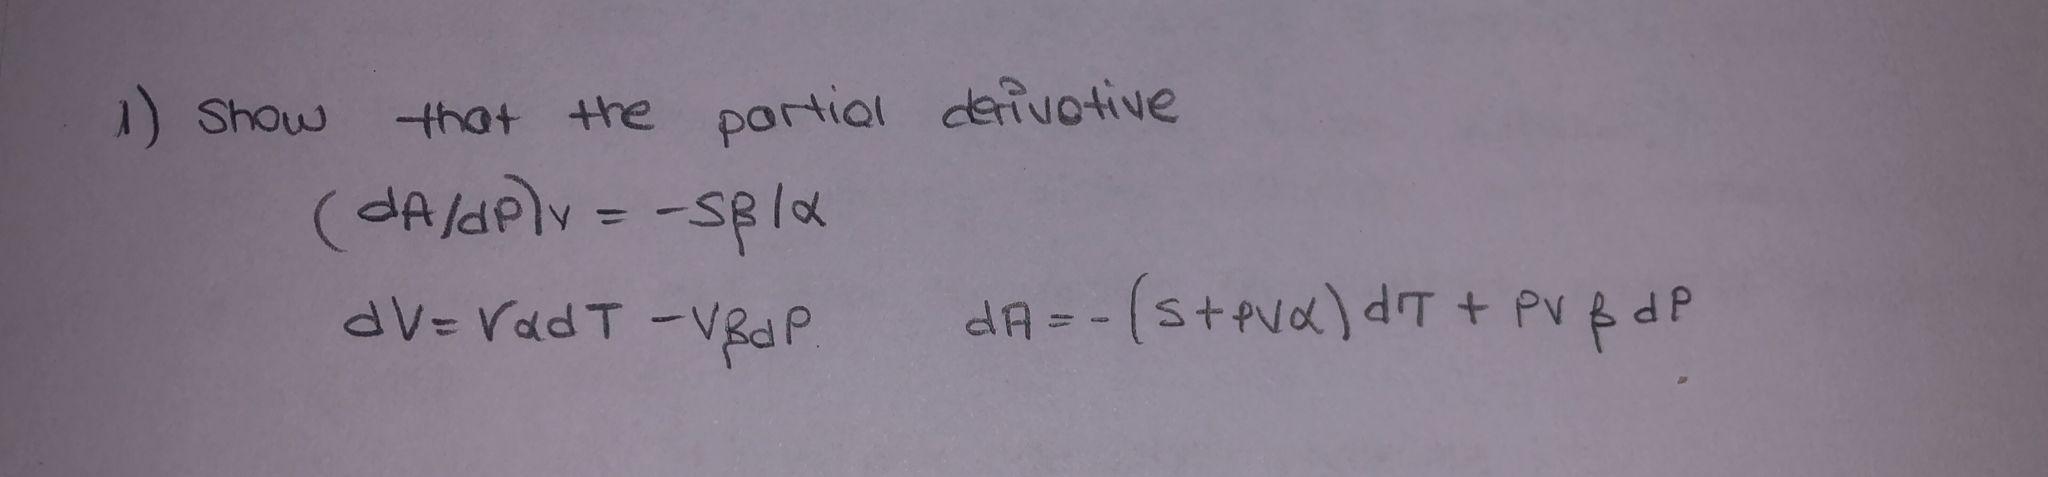 1) Show that the partial derivative
(dA/dP)v = -Sβ/α
dV = VαdT - VβdP. dA = -(S+PVα)dT + PVβdP